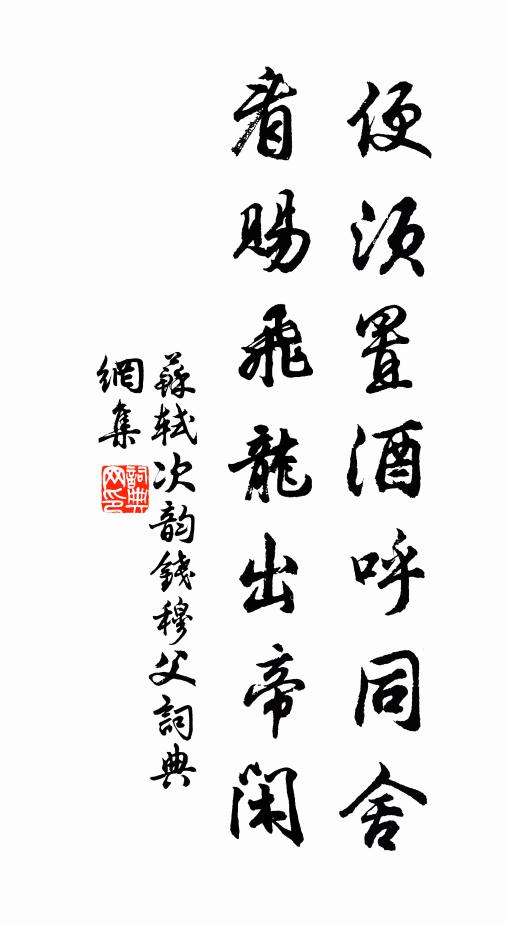 便須置酒呼同舍
看賜飛龍出帝閑
蘇軾次韵錢穆父詞典
網集
詞典
网印